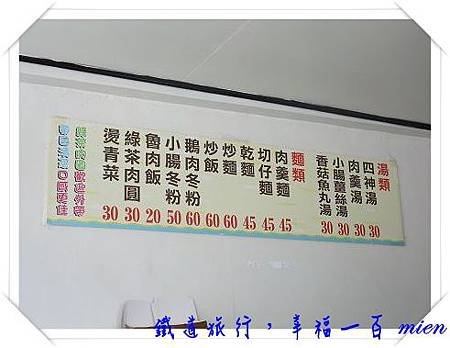 湯類
四神湯 30
肉羹湯 30
小腸薑絲湯 30
香菇魚丸湯 30
麵類
肉羹麵 45
切仔麵 45
乾麵 45
炒麵 60
炒飯 60
鵝肉冬粉 60
小腸冬粉 50
魯肉飯 20
綠茶肉圓 30
燙青菜 30
歡迎外帶
口感更佳
鐵道旅行，幸福一百 mien